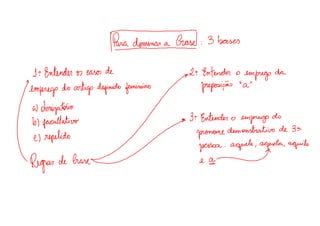 Para dominar a Crase : 3 bases
1º Entender os casos de
emprego do artigo definido feminino
a) obrigatório
b) facultativo
c) repelido
Regras de Crase
2º Entender o emprego da
preposição "a"
3º Entender o emprego do
pronome demonstrativo de 3ª
pessoa: aquele, aquela, aquilo
e a